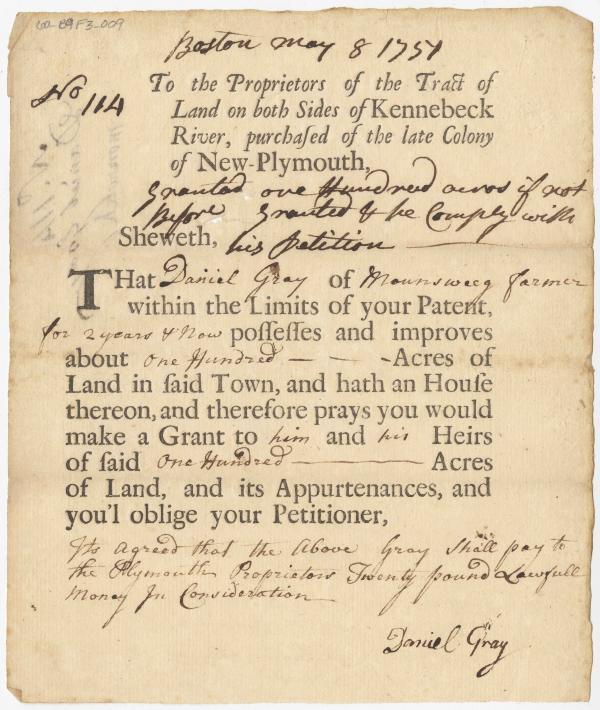 60-89F3-009
Boston may 8 1751
No 114
To the Proprietors of the Tract of
Land on both Sides of Kennebeck
River, purchaſed of the late Colony
of New-Plymouth,
Granted one Hundred acres if not
Before Granted & he Comply with
Sheweth, his Petition
THat Daniel Gray of Mounsweeg farmer
within the Limits of your Patent,
for 2 years & Now poſſeſſes and improves
about One Hundred — — - Acres of
Land in ſaid Town, and hath an Houſe
thereon, and therefore prays you would
make a Grant to him and his Heirs
of ſaid One Hundred — Acres
of Land, and its Appurtenances, and
you'l oblige your Petitioner,
Its Agreed that the Above Gray Shall pay to
the Plymouth Proprietors Twenty pound Lawfull
Money In Consideration
Daniel Gray